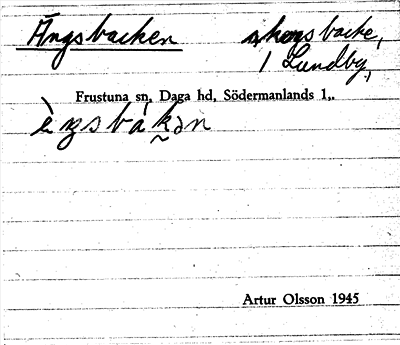 Ängsbacken skogsbacke,
i Lundby,
Frustuna sn, Daga hd, Södermanlands l.
è̀ŋsbákən
Artur Olsson 1945